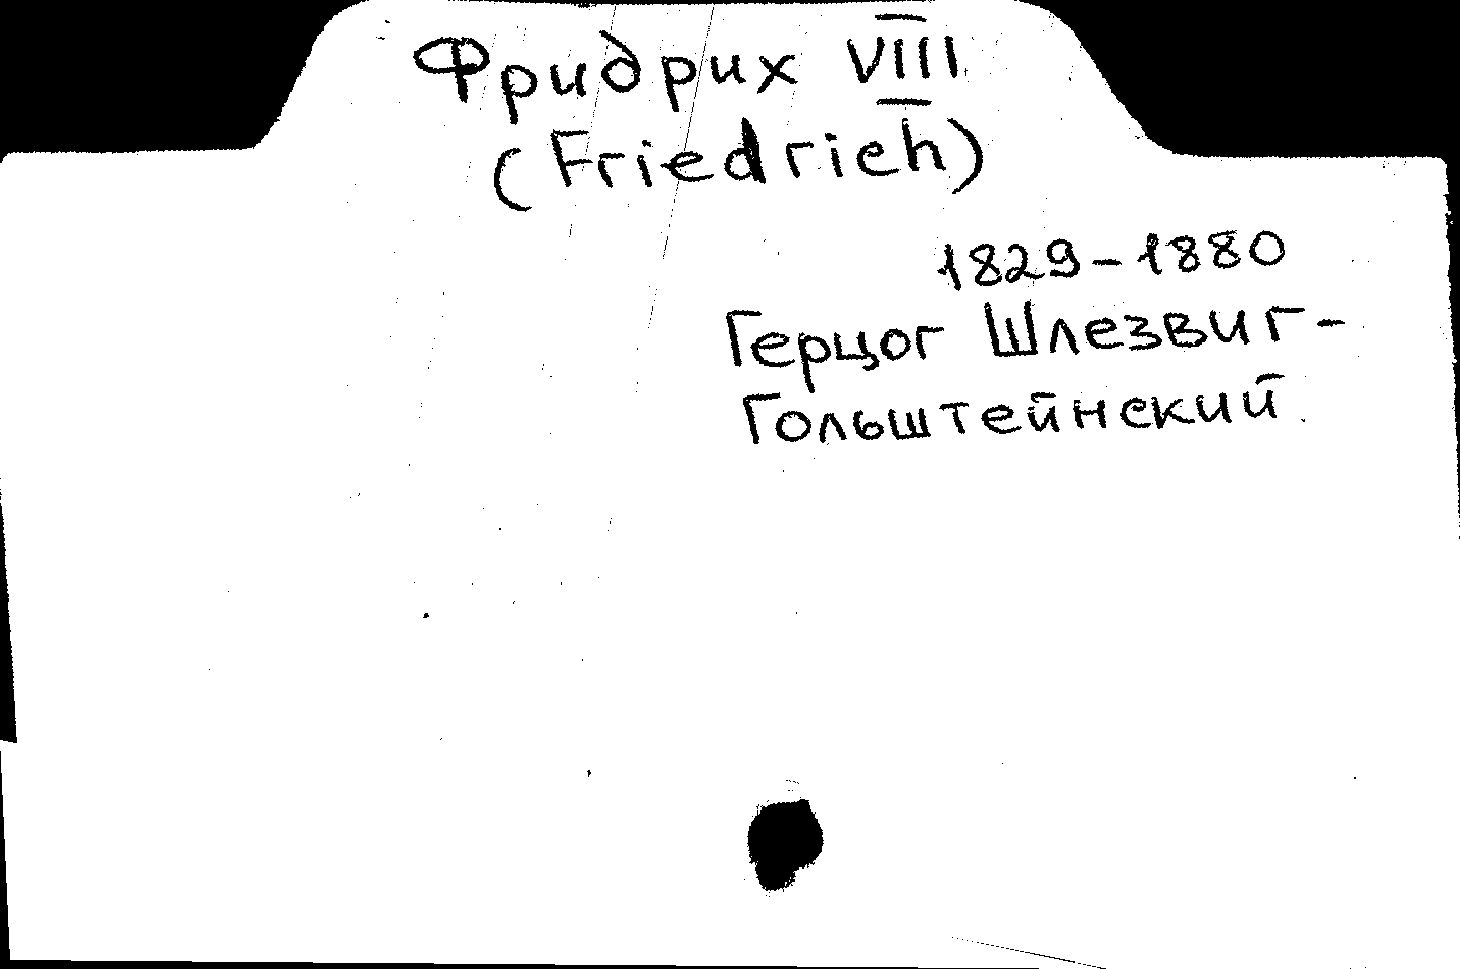 Фридрих VIII
(Friedrich)
1829-1880
Герцог Шлезвиг-
Гольштейнский